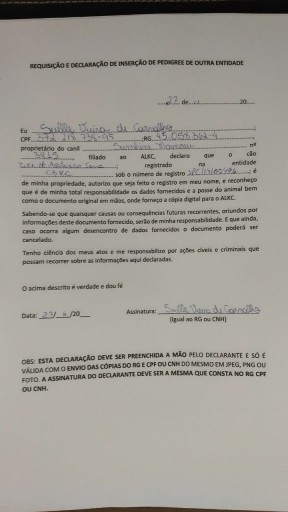 REQUISIÇÃO E DECLARAÇÃO DE INSERÇÃO DE PEDIGREE DE OUTRA ENTIDADE
22 de 20
Eu de Carvalho
CPF RG
proprietário do canil nº
filiado ao ALKC, declaro que o cão
registrado na entidade
sob o número de registro é
de minha propriedade, autorizo que seja feito o registro em meu nome, e reconheço
que é de minha total responsabilidade os dados fornecidos e a posse do animal bem
como o documento original em mãos, onde forneço a cópia digital para o ALKC.
Sabendo-se que quaisquer causas ou consequências futuras recorrentes, oriundos por
informações deste documento fornecido, serão de minha responsabilidade. E que ainda,
caso ocorra algum desencontro de dados fornecidos o documento poderá ser
cancelado.
Tenho ciência dos meus atos e me responsabilizo por ações cíveis e criminais que
possam recorrer sobre as informações aqui declaradas.
O acima descrito é verdade e dou fé
Data: /20 Assinatura: de Carvalho
(Igual ao RG ou CNH)
OBS: ESTA DECLARAÇÃO DEVE SER PREENCHIDA A MÃO PELO DECLARANTE E SÓ É
VÁLIDA COM O ENVIO DAS CÓPIAS DO RG E CPF OU CNH DO MESMO EM JPEG, PNG OU
FOTO. A ASSINATURA DO DECLARANTE DEVE SER A MESMA QUE CONSTA NO RG CPF
OU CNH.